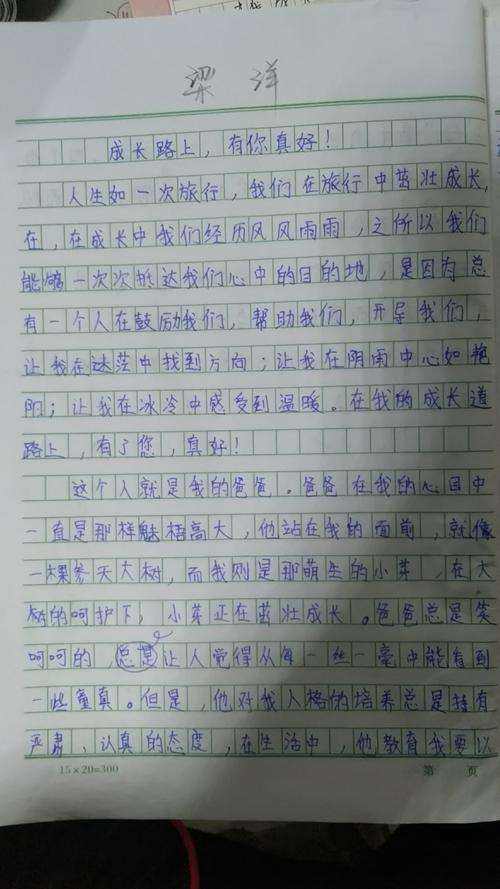 梁洋
成长路上，有你真好！
人生如一次旅行，我们在旅行中茁壮成长，
在，在成长中我们经历风风雨雨，之所以我们
能够一次次抵达我们心中的目的地，是因为总
有一个人在鼓励我们，帮助我们，开导我们，
让我在迷茫中找到方向；让我在阴雨中心如艳
阳；让我在冰冷中感受到温暖。在我的成长道
路上，有了您，真好！
这个人就是我的爸爸。爸爸在我的心目中
一直是那样魅梧高大，他站在我的面前，就像
一棵参天大树，而我则是那萌生的小芽，在大
树的呵护下，小芽正在茁壮成长。爸爸总是笑
呵呵的，总是让人觉得从每一丝一毫中能看到
一些童真。但是，他对我人格的培养总是持有
严肃、认真的态度，在生活中，他教育我要以
15×20=300 第 页